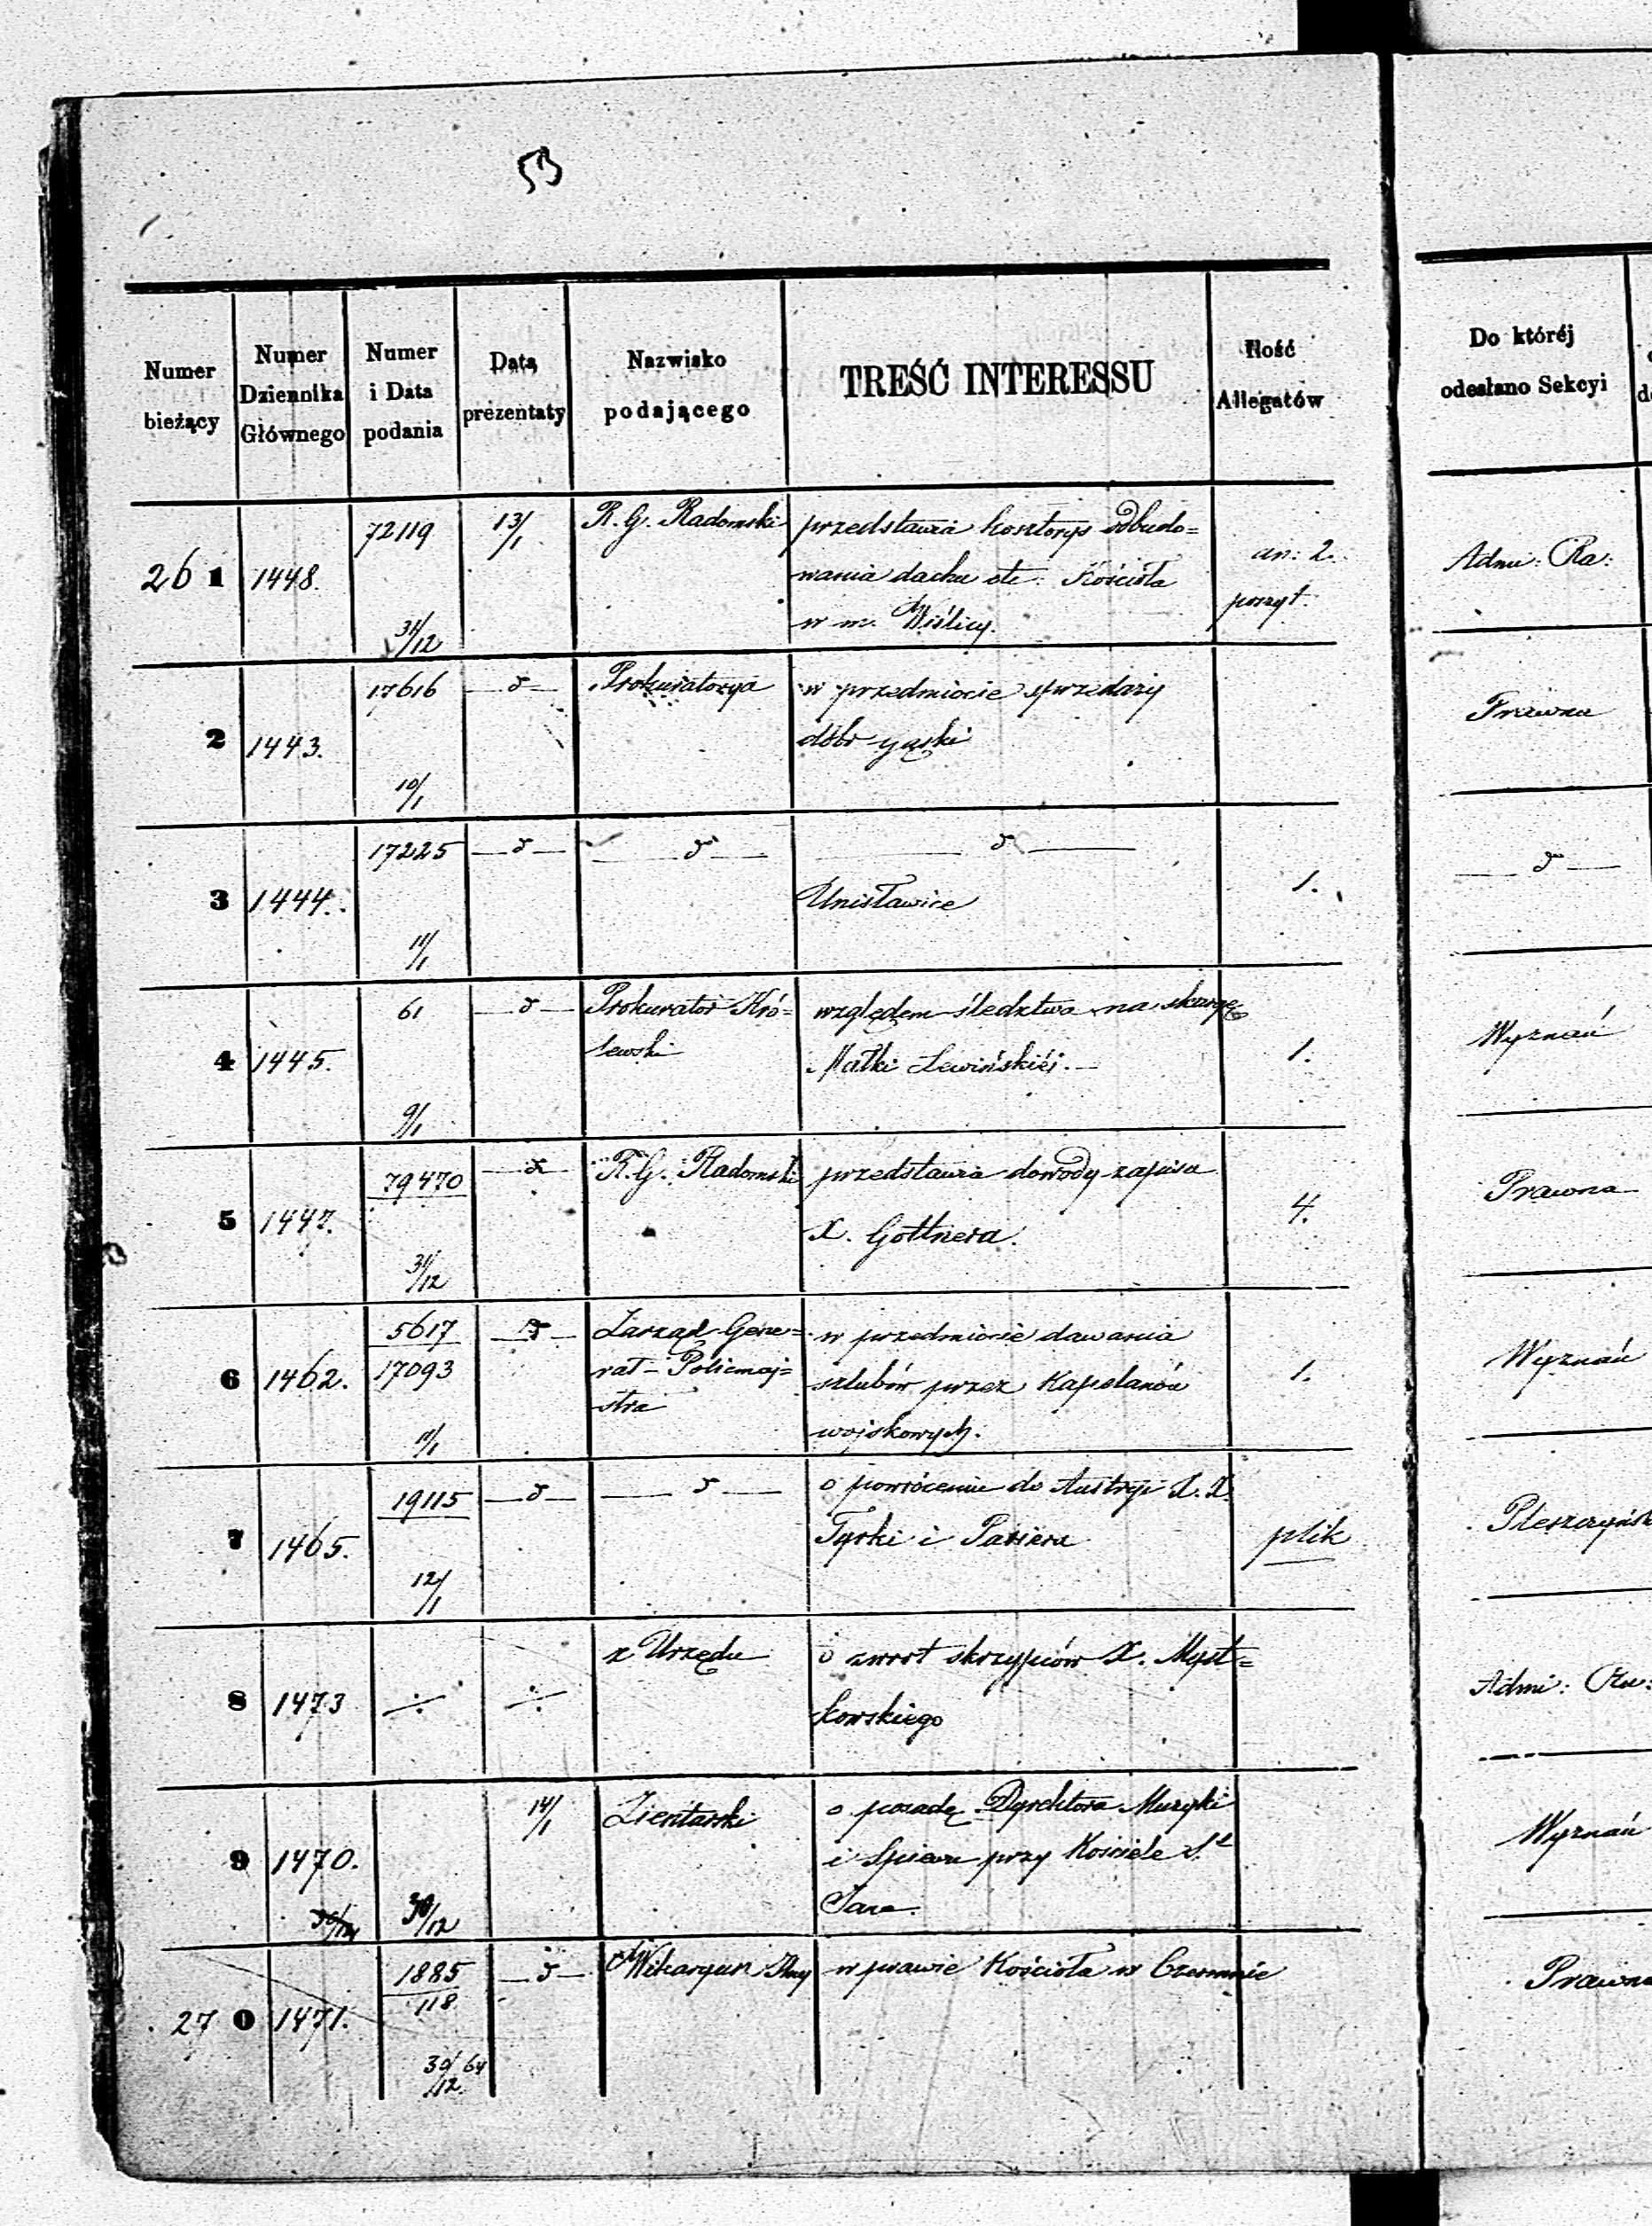 53
Numer bieżący
Numer Dziennika Głównego
Numer i Data podania
Data prezentaty
Nazwisko podającego
TREŚĆ INTERESSU
Ilość Allegatów
Do któréj odesłano Sekcyi
261 1448. 72119 31/12 13/1 R. G. Radomski
przedstawia kosztorys odbudo=
wania dachu etc: Kościoła
w m. Wiślicy.
an: 2.
poszyt.
Adm: Ra:
2 1443. 17616 10/1 —d— Prokuratorya
w przedmiocie sprzedaży
dóbr
Prawna
3 1444. 17225 11/1 —d— —d— —d—
Unisławice
1.
—d—
4 1445. 61 9/1 —d— Prokurator Kró=
lewski
względem śledztwa na skargę
Małki Lewińskiéj.—
1.
Wyznań
5 1447. 79470 31/12 —d— R. G. Radomski
przedstawia dowody zapisu
X. Gottnera.
4.
Prawna
6 1462. 5617
17093 11/1 —d— Zarząd Gene=
rał-Policmaj=
stra
w przedmiocie dawania
szlubów przez Kapelanów
wojskowych.
1.
Wyznań
7 1465. 19115 12/1 —d— —d—
o powróceniu do Austryi X. X.
Tyrki i
plik
8 1473 ÷ ÷ z Urzędu
o zwrot skryptów X. Myst=
kowskiego
Admi:
9 1470. 30/12 30/12 14/1 Zientarski
o posadę Dyrektora Muzyki
i Śpiewu przy Kościele St
Jana.
Wyznań
270 1471. 1885
118 30/12 64 —d— Wikaryusz
w prawie Kościoła w Czermnie
Prawna